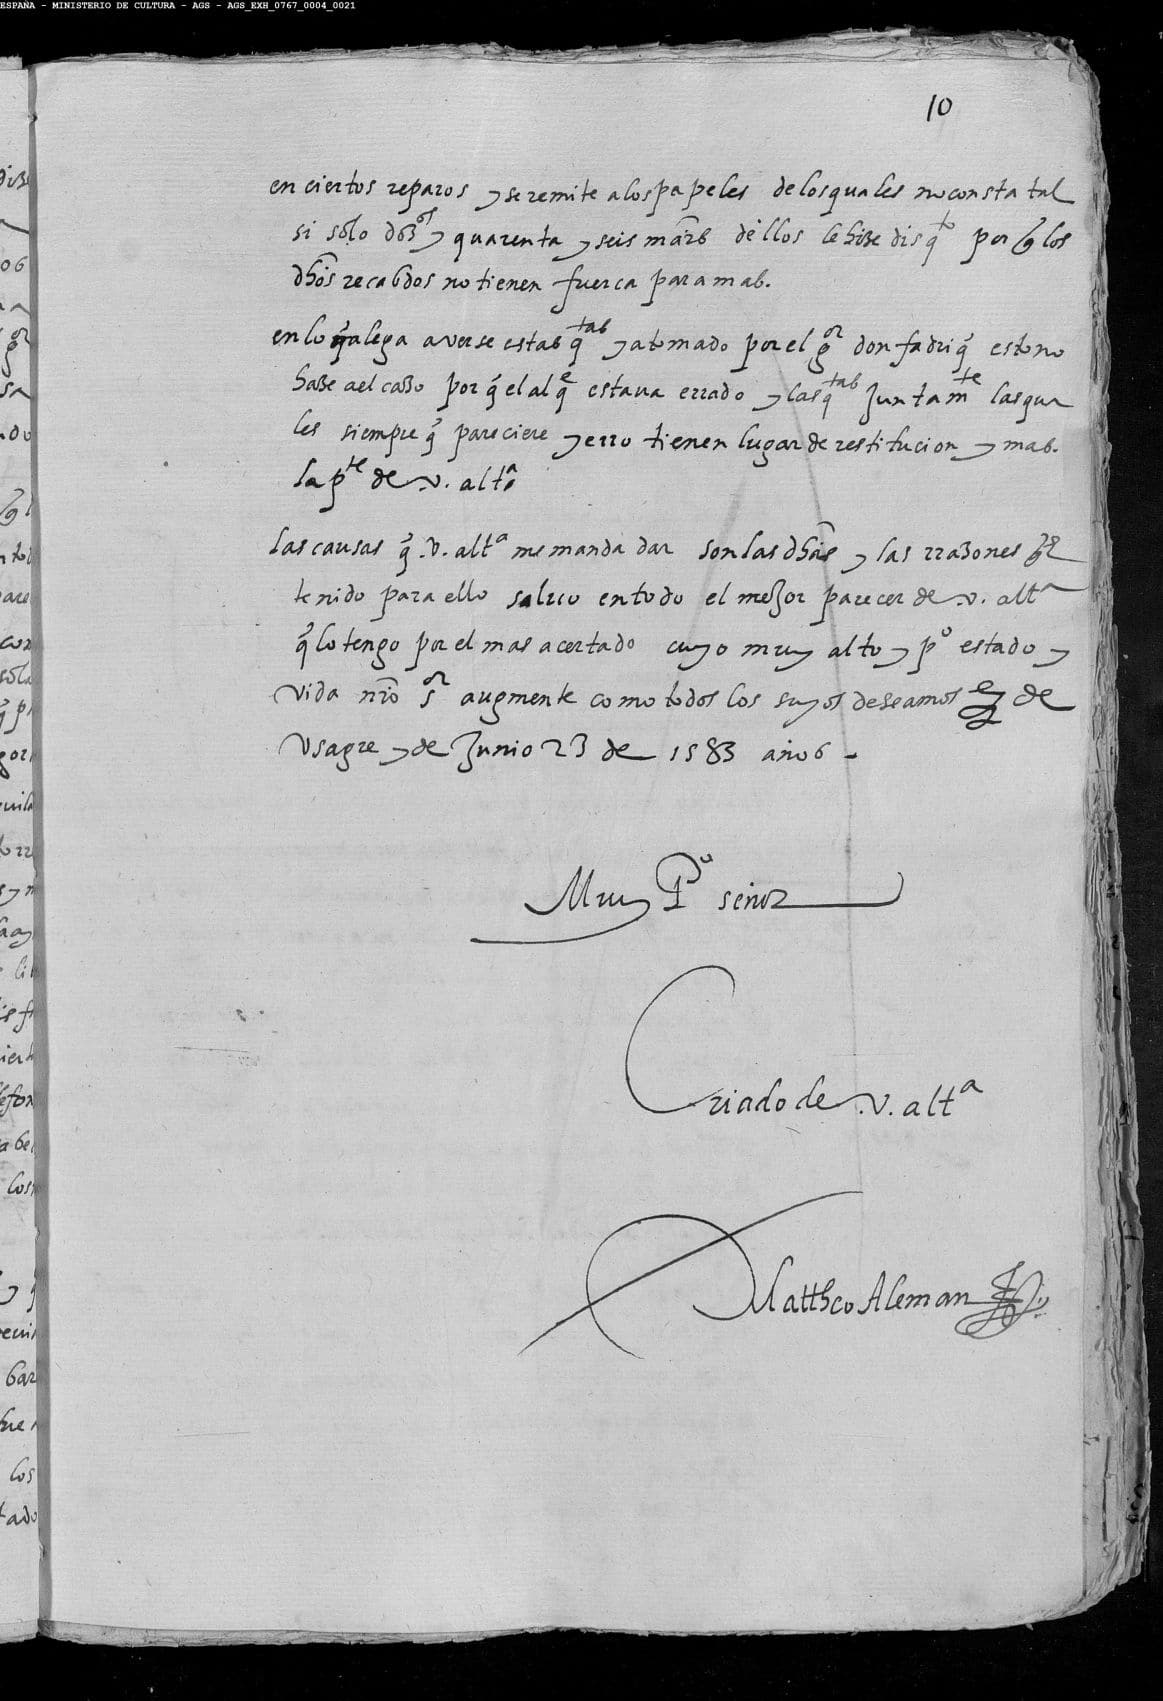 ESPAÑA - MINISTERIO DE CULTURA - AGS - AGS_EXH_0767_0004_0021
10
en ciertos reparos y se remite a los papeles de los quales no consta tal
si solo y quarenta y seis mārs dellos le hize disqto por q los
dhos recabdos no tienen fuerça para mas.
en lo q alega averse estas qtas y a tomado por el gor don fadriq esto no
haze a el caso por q el alqe estava errado y las qtas juntamte las qua
les siempre q pareciere yerro tienen lugar de restitucion y mas.
la pte de .v. alta
las causas q .v. alta me manda dar son las dhas y las rrazones q he
tenido para ello salvo en todo el mejor parecer de .v. alta
q lo tengo por el mas acertado cuyo muy alto y po estado y
vida nro sor augmente como todos los suyos deseamos de
Usagre y de Junio 23 de 1583 años -
Muy Po señor
Criado de .v. alta
Mattheo Aleman